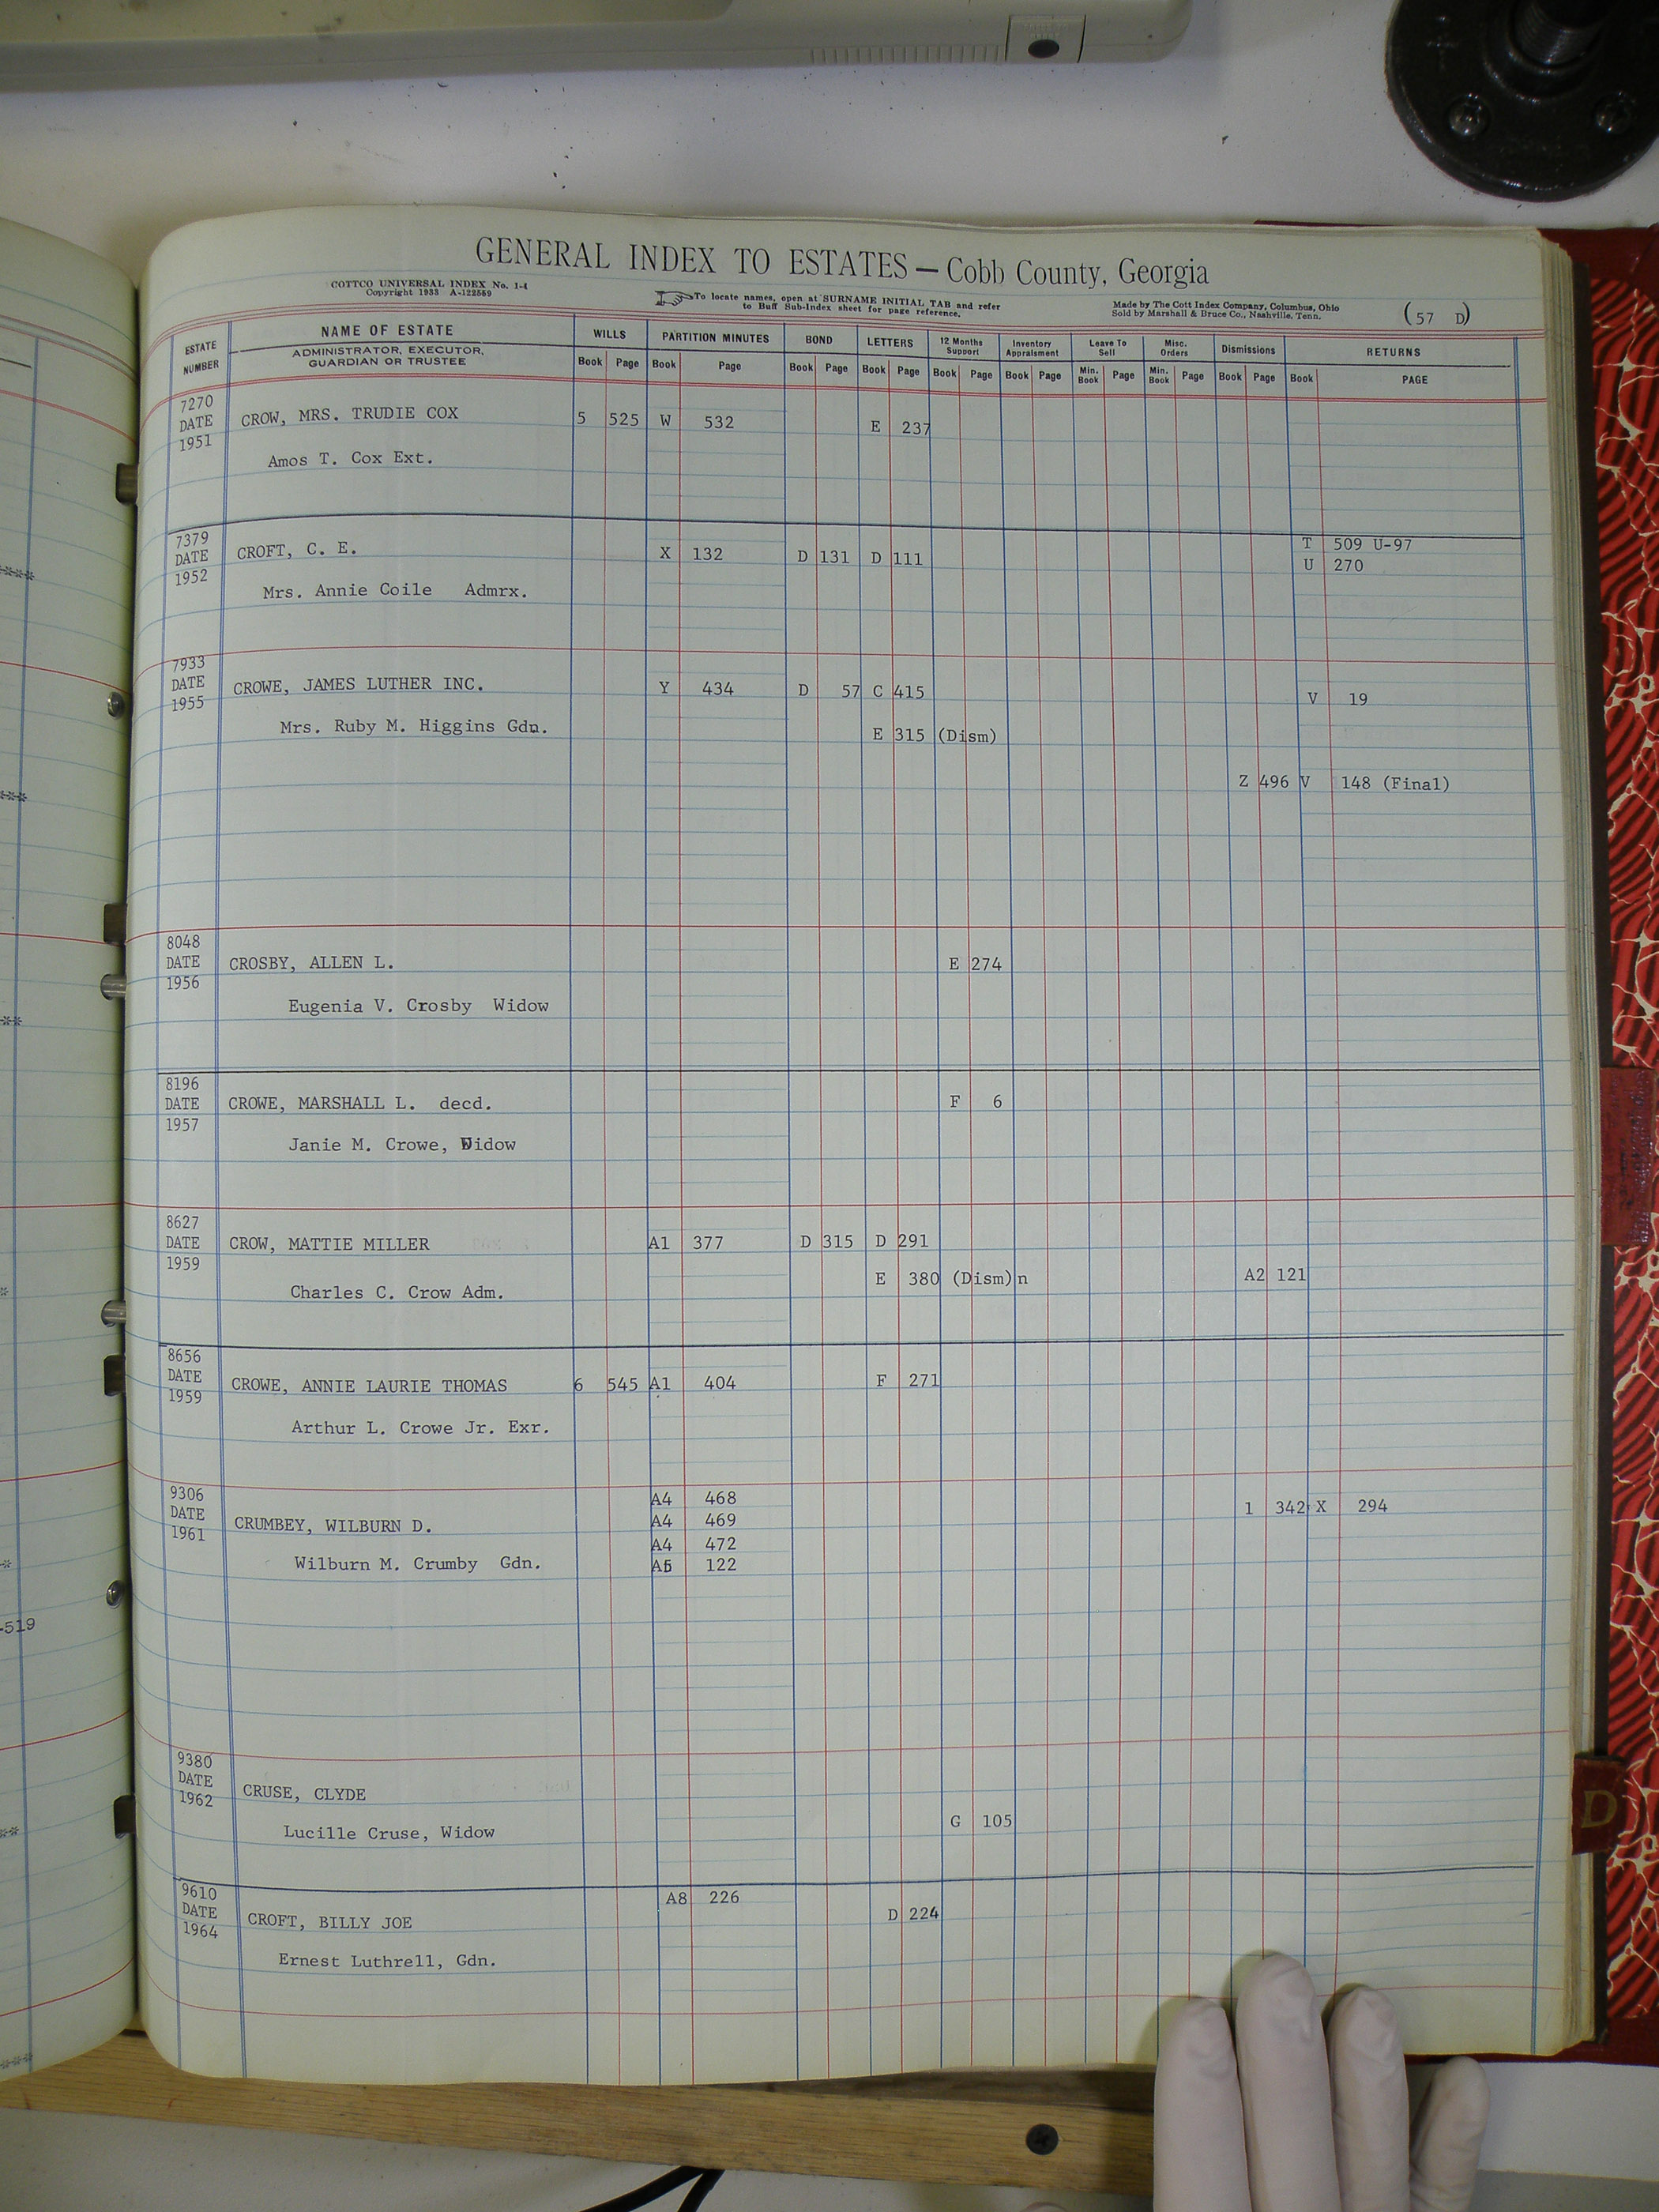 GENERAL INDEX TO ESTATES — Cobb County, Georgia
COTTCO UNIVERSAL INDEX No. 1-4
Copyright 1933 A-122559
To locate names, open at SURNAME INITIAL TAB and refer
to Buff Sub-Index sheet for page reference.
Made by The Cott Index Company, Columbus, Ohio
Sold by Marshall & Bruce Co., Nashville, Tenn.
(57 D)
ESTATE NUMBER
NAME OF ESTATE
ADMINISTRATOR, EXECUTOR,
GUARDIAN OR TRUSTEE
WILLS PARTITION MINUTES BOND LETTERS 12 Months Support Inventory Appraisment Leave To Sell Misc. Orders Dismissions RETURNS
Book Page Book Page Book Page Book Page Book Page Book Page Min. Book Page Min. Book Page Book Page Book PAGE
7270
DATE CROW, MRS. TRUDIE COX 5 525 W 532 E 237
1951
Amos T. Cox Ext.
7379 T 509 U-97
DATE CROFT, C. E. X 132 D 131 D 111 U 270
1952
Mrs. Annie Coile Admrx.
7933
DATE CROWE, JAMES LUTHER INC. Y 434 D 57 C 415 V 19
1955
Mrs. Ruby M. Higgins Gdn. E 315 (Dism)
Z 496 V 148 (Final)
8048
DATE CROSBY, ALLEN L. E 274
1956
Eugenia V. Crosby Widow
8196
DATE CROWE, MARSHALL L. decd. F 6
1957
Janie M. Crowe, Widow
8627
DATE CROW, MATTIE MILLER A1 377 D 315 D 291
1959 E 380 (Dism)n A2 121
Charles C. Crow Adm.
8656
DATE CROWE, ANNIE LAURIE THOMAS 6 545 A1 404 F 271
1959
Arthur L. Crowe Jr. Exr.
9306 A4 468 1 342 X 294
DATE CRUMBEY, WILBURN D. A4 469
1961 A4 472
Wilburn M. Crumby Gdn. A5 122
-519
9380
DATE CRUSE, CLYDE
1962 G 105
Lucille Cruse, Widow
9610 A8 226
DATE CROFT, BILLY JOE D 224
1964
Ernest Luthrell, Gdn.
D